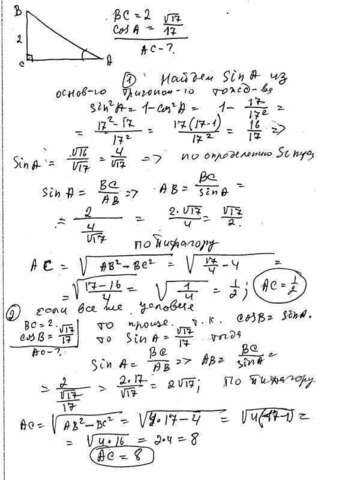 B
BC = 2
cosA = √17/17
AC - ?
2
C
A
① Найдем SinA из
основ-го тригоном-го тожд-ва
sin²A = 1 - cos²A = 1 - 17/17² =
= (17² - 17)/17² = 17(17-1)/17² = 16/17 =>
SinA = √16/√17 = 4/√17 => по определению Sinуса
SinA = BC/AB => AB = BC/sinA =
= 2/(4/√17) = 2·√17/4 = √17/2.
по Пифагору
AC = √(AB² - BC²) = √(17/4 - 4) =
= √((17-16)/4) = √(1/4) = 1/2; AC = 1/2
② если все же условие
BC = 2
cosB = √17/17
AC - ?
то т.к. cosB = sinA.
то SinA = √17/17 тогда
SinA = BC/AB => AB = BC/sinA =
= 2/(√17/17) = 2·17/√17 = 2√17; по Пифагору
AC = √(AB² - BC²) = √(4·17 - 4) = √(4(17-1)) =
= √(4·16) = 2·4 = 8
AC = 8